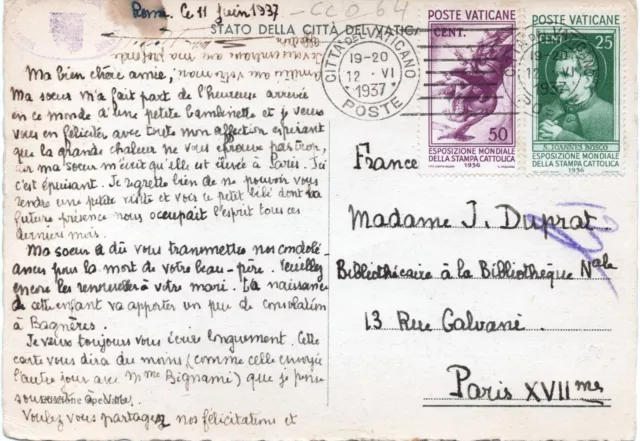 Rome, Ce 11 Juin 1937
CCO 64
STATO DELLA CITTÀ DEL VATICANO
Ma bien chère amie,
Ma soeur m'a fait part de l'heureuse arrivée
en ce monde d'une petite bambinette et je veux
vous en féliciter avec toute mon affection espérant
que la grande chaleur ne vous éprouve pas trop,
car ma soeur m'écrit qu'elle est élevée à Paris. Ici
c'est épuisant. Je regrette bien de ne pouvoir vous
rendre une petite visite et voir ce petit bébé dont la
future présence nous occupait l'esprit tous ces
derniers mois.
Ma soeur a dû vous transmettre nos condolé-
ances pour la mort de votre beau-père. Veuillez
encore les renouveler à votre mari. La naissance
de cette enfant va apporter un peu de consolation
à Bagnères.
Je veux toujours vous écrire longuement. Cette
carte vous dira du moins (comme celle envoyée
l'autre jour avec Mme Bignami) que je pense
souvent à
Voulez vous partager nos félicitations et
POSTE VATICANE
CENT.
50
ESPOSIZIONE MONDIALE
DELLA STAMPA CATTOLICA
1936
POSTE VATICANE
25
S. IOANNES BOSCO
ESPOSIZIONE MONDIALE
DELLA STAMPA CATTOLICA
1936
CITTÀ DEL VATICANO
19-20
12 · VI
1937
POSTE
19-20
12 · VI
1937
France
Madame J. Duprat
Bibliothécaire à la Bibliothèque Nale
13 Rue Galvani
Paris XVIIme